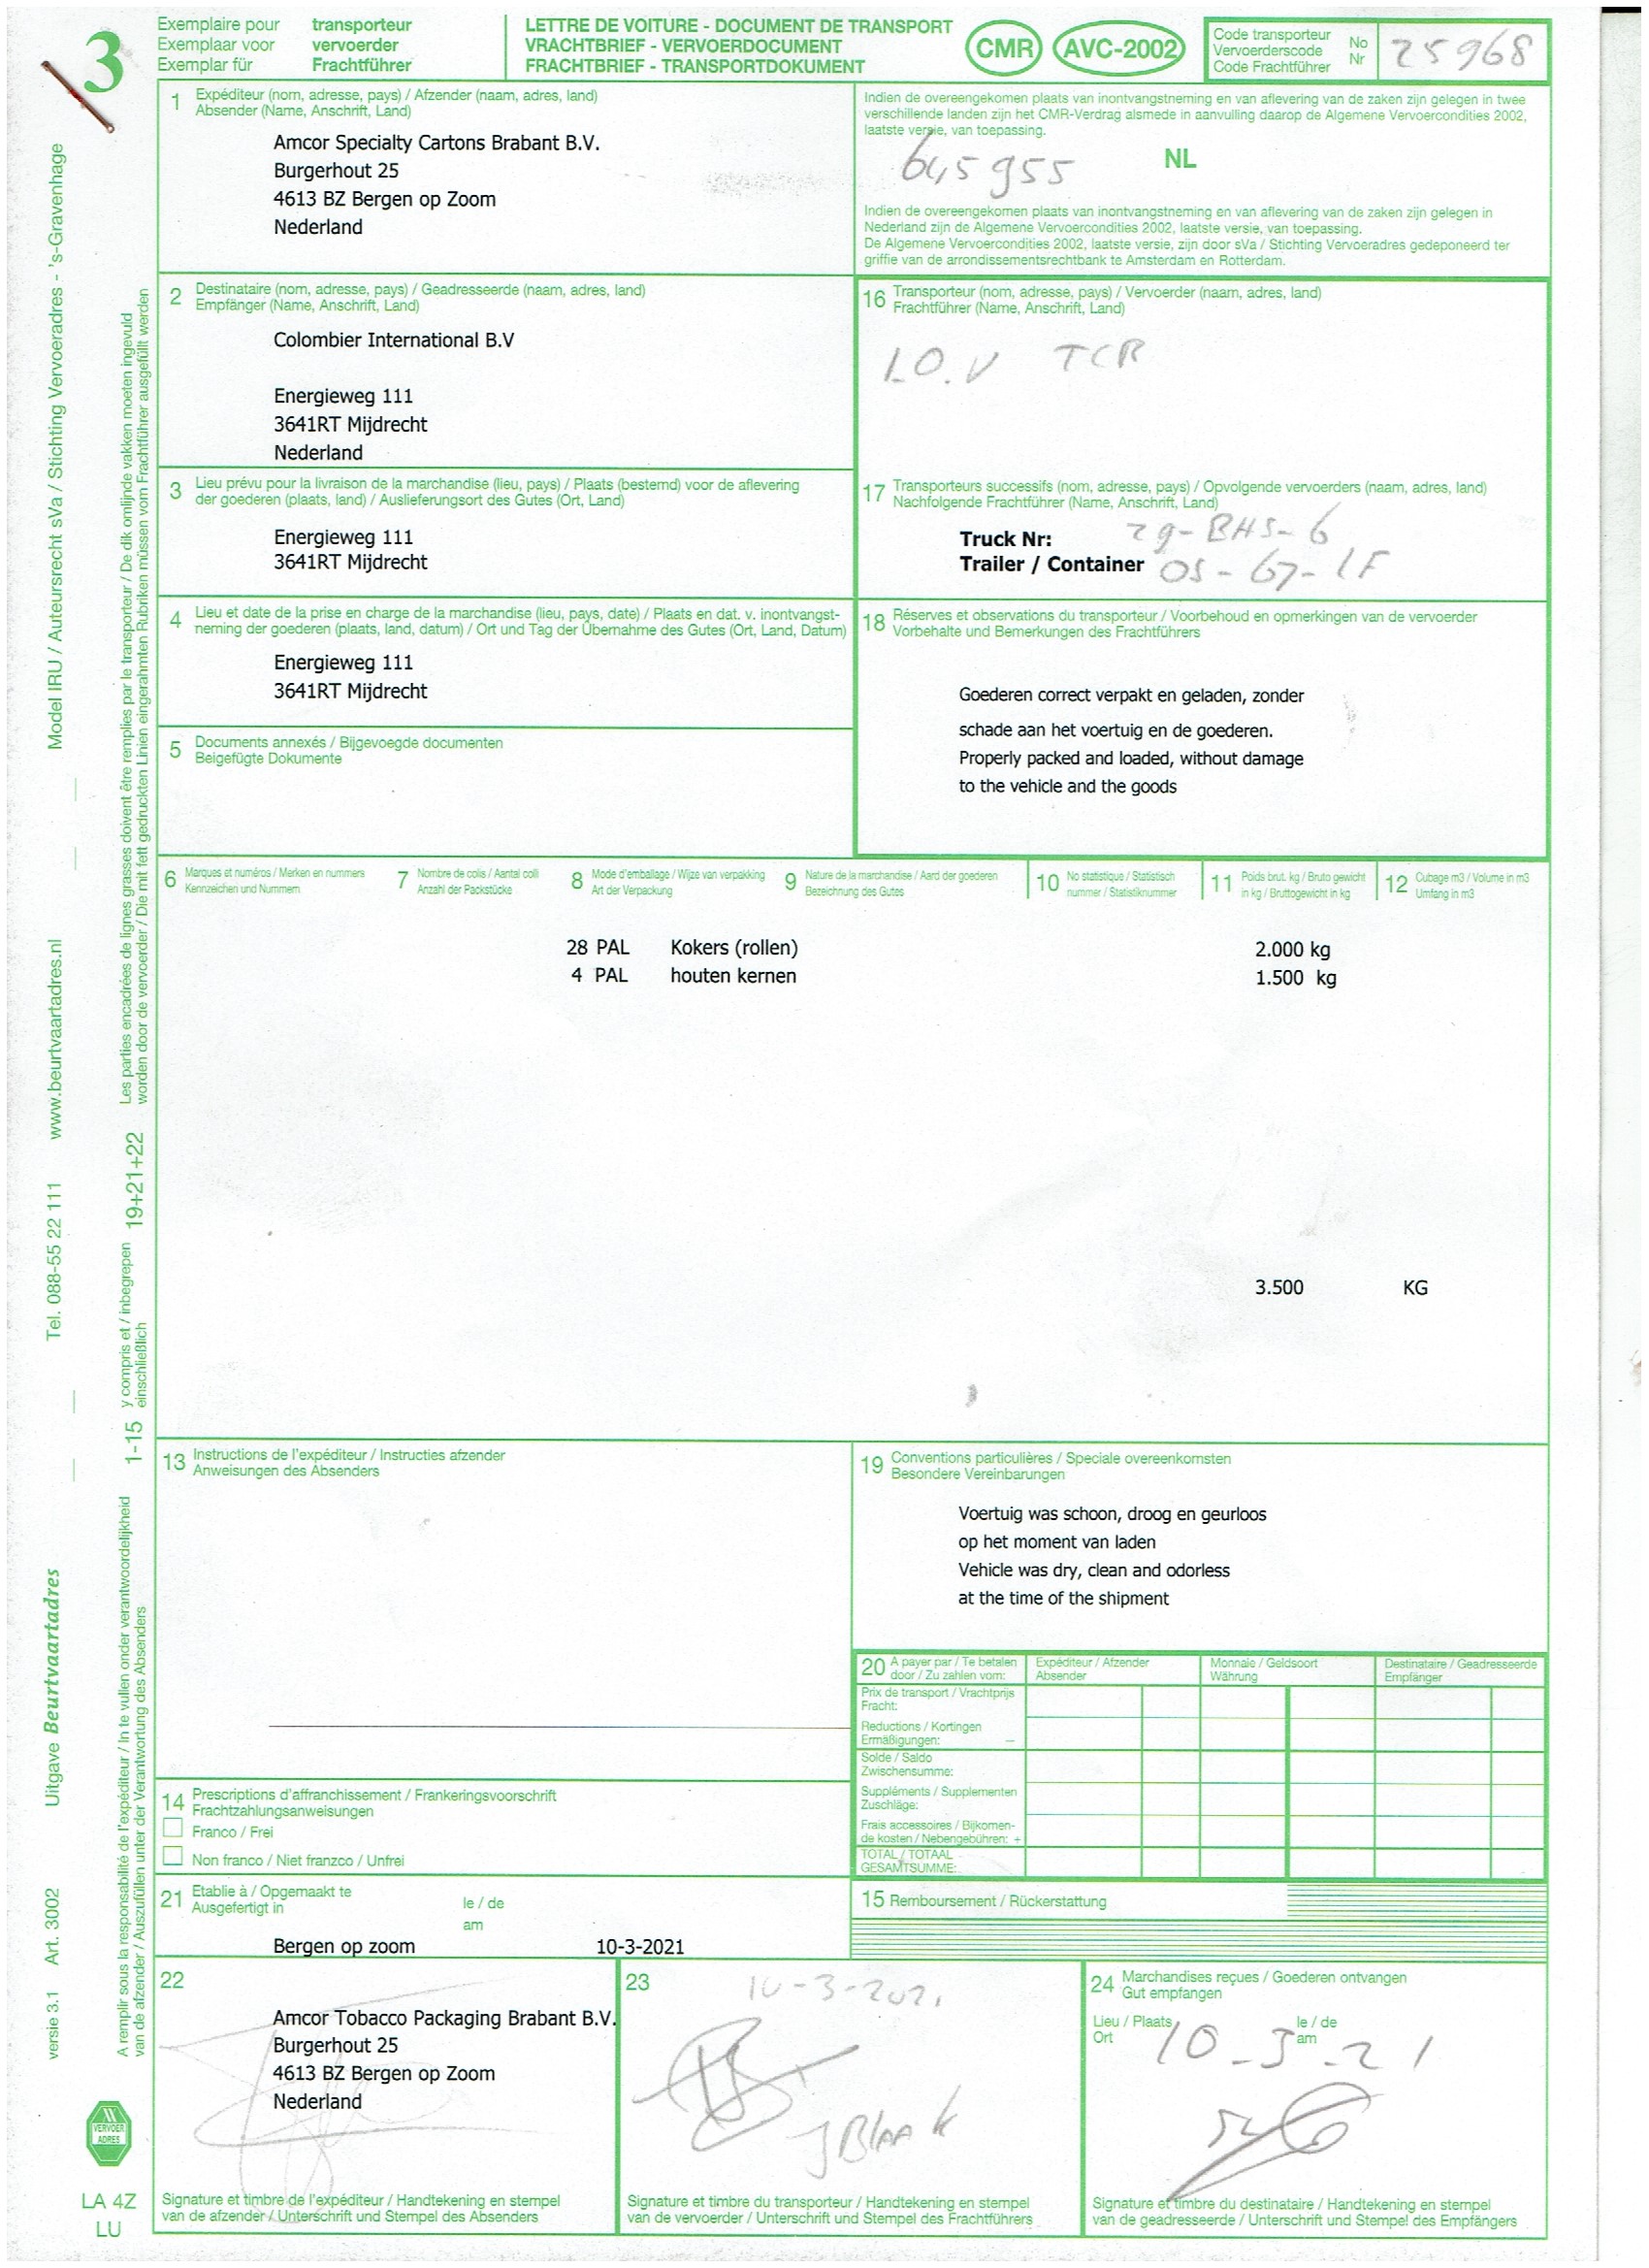 3
Exemplaire pour transporteur
Exemplaar voor vervoerder
Exemplar für Frachtführer
LETTRE DE VOITURE - DOCUMENT DE TRANSPORT
VRACHTBRIEF - VERVOERDOCUMENT
FRACHTBRIEF - TRANSPORTDOKUMENT
CMR
AVC-2002
Code transporteur No
Vervoerderscode Nr
Code Frachtführer
25968
1 Expéditeur (nom, adresse, pays) / Afzender (naam, adres, land)
Absender (Name, Anschrift, Land)
Amcor Specialty Cartons Brabant B.V.
Burgerhout 25
4613 BZ Bergen op Zoom
Nederland
Indien de overeengekomen plaats van inontvangstneming en van aflevering van de zaken zijn gelegen in twee
verschillende landen zijn het CMR-Verdrag alsmede in aanvulling daarop de Algemene Vervoercondities 2002,
laatste versie, van toepassing.
NL
Indien de overeengekomen plaats van inontvangstneming en van aflevering van de zaken zijn gelegen in
Nederland zijn de Algemene Vervoercondities 2002, laatste versie, van toepassing.
De Algemene Vervoercondities 2002, laatste versie, zijn door sVa / Stichting Vervoeradres gedeponeerd ter
griffie van de arrondissementsrechtbank te Amsterdam en Rotterdam.
2 Destinataire (nom, adresse, pays) / Geadresseerde (naam, adres, land)
Empfänger (Name, Anschrift, Land)
Colombier International B.V
Energieweg 111
3641RT Mijdrecht
Nederland
16 Transporteur (nom, adresse, pays) / Vervoerder (naam, adres, land)
Frachtführer (Name, Anschrift, Land)
I.O.V TCR
3 Lieu prévu pour la livraison de la marchandise (lieu, pays) / Plaats (bestemd) voor de aflevering
der goederen (plaats, land) / Auslieferungsort des Gutes (Ort, Land)
Energieweg 111
3641RT Mijdrecht
17 Transporteurs successifs (nom, adresse, pays) / Opvolgende vervoerders (naam, adres, land)
Nachfolgende Frachtführer (Name, Anschrift, Land)
Truck Nr: 29-BHS-6
Trailer / Container OS-67-LF
4 Lieu et date de la prise en charge de la marchandise (lieu, pays, date) / Plaats en dat. v. inontvangst-
neming der goederen (plaats, land, datum) / Ort und Tag der Übernahme des Gutes (Ort, Land, Datum)
Energieweg 111
3641RT Mijdrecht
18 Réserves et observations du transporteur / Voorbehoud en opmerkingen van de vervoerder
Vorbehalte und Bemerkungen des Frachtführers
Goederen correct verpakt en geladen, zonder
schade aan het voertuig en de goederen.
Properly packed and loaded, without damage
to the vehicle and the goods
5 Documents annexés / Bijgevoegde documenten
Beigefügte Dokumente
6 Marques et numéros / Merken en nummers
Kennzeichen und Nummern
7 Nombre de colis / Aantal colli
Anzahl der Packstücke
8 Mode d'emballage / Wijze van verpakking
Art der Verpackung
9 Nature de la marchandise / Aard der goederen
Bezeichnung des Gutes
10 No statistique / Statistisch
nummer / Statistiknummer
11 Poids brut. kg / Bruto gewicht
in kg / Bruttogewicht in kg
12 Cubage m3 / Volume in m3
Umfang in m3
28 PAL Kokers (rollen) 2.000 kg
4 PAL houten kernen 1.500 kg
3.500 KG
13 Instructions de l'expéditeur / Instructies afzender
Anweisungen des Absenders
19 Conventions particulières / Speciale overeenkomsten
Besondere Vereinbarungen
Voertuig was schoon, droog en geurloos
op het moment van laden
Vehicle was dry, clean and odorless
at the time of the shipment
20 A payer par / Te betalen
door / Zu zahlen vom:
Expéditeur / Afzender
Absender
Monnaie / Geldsoort
Währung
Destinataire / Geadresseerde
Empfänger
Prix de transport / Vrachtprijs
Fracht:
Reductions / Kortingen
Ermäßigungen: –
Solde / Saldo
Zwischensumme:
Suppléments / Supplementen
Zuschläge:
Frais accessoires / Bijkomen-
de kosten / Nebengebühren: +
TOTAL / TOTAAL
GESAMTSUMME:
14 Prescriptions d'affranchissement / Frankeringsvoorschrift
Frachtzahlungsanweisungen
Franco / Frei
Non franco / Niet franzco / Unfrei
21 Etablie à / Opgemaakt te le / de
Ausgefertigt in am
Bergen op zoom 10-3-2021
15 Remboursement / Rückerstattung
22
Amcor Tobacco Packaging Brabant B.V.
Burgerhout 25
4613 BZ Bergen op Zoom
Nederland
Signature et timbre de l'expéditeur / Handtekening en stempel
van de afzender / Unterschrift und Stempel des Absenders
23
10-3-2021
J Blaak
Signature et timbre du transporteur / Handtekening en stempel
van de vervoerder / Unterschrift und Stempel des Frachtführers
24 Marchandises reçues / Goederen ontvangen
Gut empfangen
Lieu / Plaats le / de
Ort am
10-3-21
Signature et timbre du destinataire / Handtekening en stempel
van de geadresseerde / Unterschrift und Stempel des Empfängers
Model IRU / Auteursrecht sVa / Stichting Vervoeradres - 's-Gravenhage
www.beurtvaartadres.nl
Tel. 088-55 22 111
Uitgave Beurtvaartadres
Art. 3002
versie 3.1
Les parties encadrées de lignes grasses doivent être remplies par le transporteur / De dik omlijnde vakken moeten ingevuld
worden door de vervoerder / Die mit fett gedruckten Linien eingerahmten Rubriken müssen vom Frachtführer ausgefüllt werden
19+21+22
y compris et / inbegrepen
einschließlich
1-15
A remplir sous la responsabilité de l'expéditeur / In te vullen onder verantwoordelijkheid
van de afzender / Auszufüllen unter der Verantwortung des Absenders
VERVOER
ADRES
LA 4Z
LU